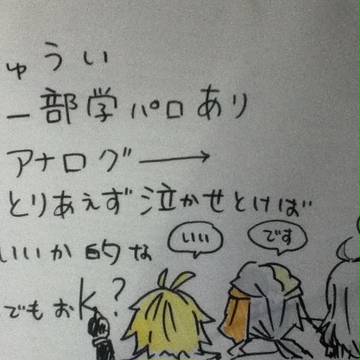 ゅうい
一部学パロあり
アナログ→
とりあえず泣かせとけば
いいか的な
でもおk?
いい
です